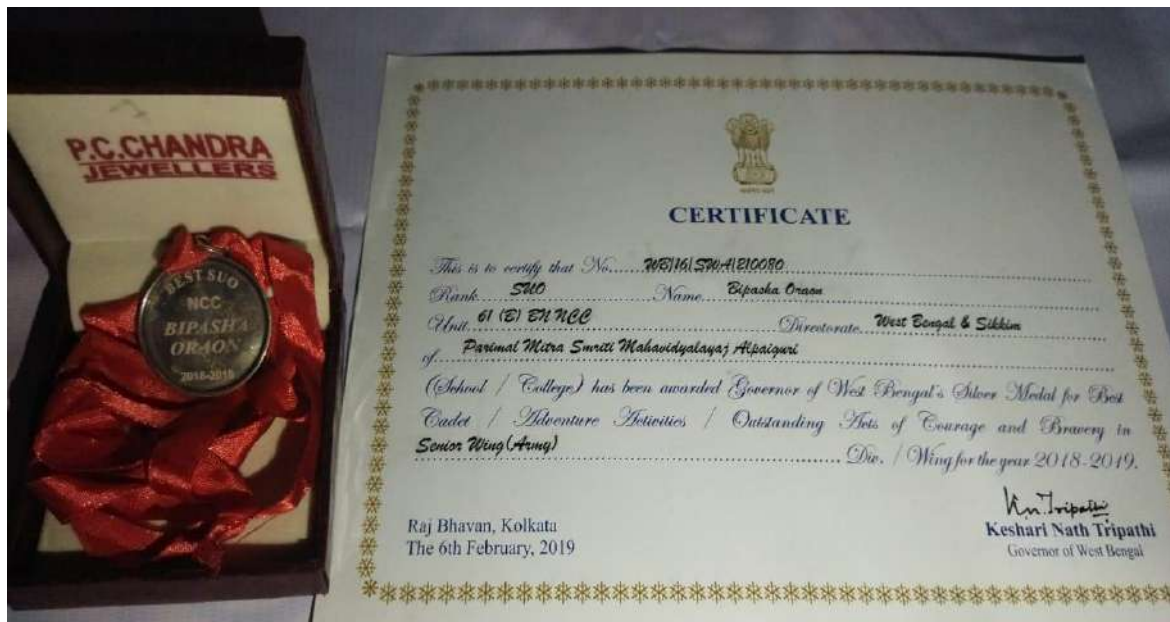 P.C.CHANDRA
JEWELLERS
BEST SUO
NCC
BIPASHA
ORAON
2018-2019
CERTIFICATE
This is to certify that No. WB/16/SWA/210080
Rank SUO Name Bipasha Oraon
Unit 61 (B) BN NCC Directorate West Bengal & Sikkim
of Parimal Mitra Smriti Mahavidyalayaj Alpaiguri
(School / College) has been awarded Governor of West Bengal's Silver Medal for Best
Cadet / Adventure Activities / Outstanding Acts of Courage and Bravery in
Senior Wing(Army) Div. / Wing for the year 2018-2019.
Kn. Tripathi
Raj Bhavan, Kolkata
The 6th February, 2019
Keshari Nath Tripathi
Governor of West Bengal